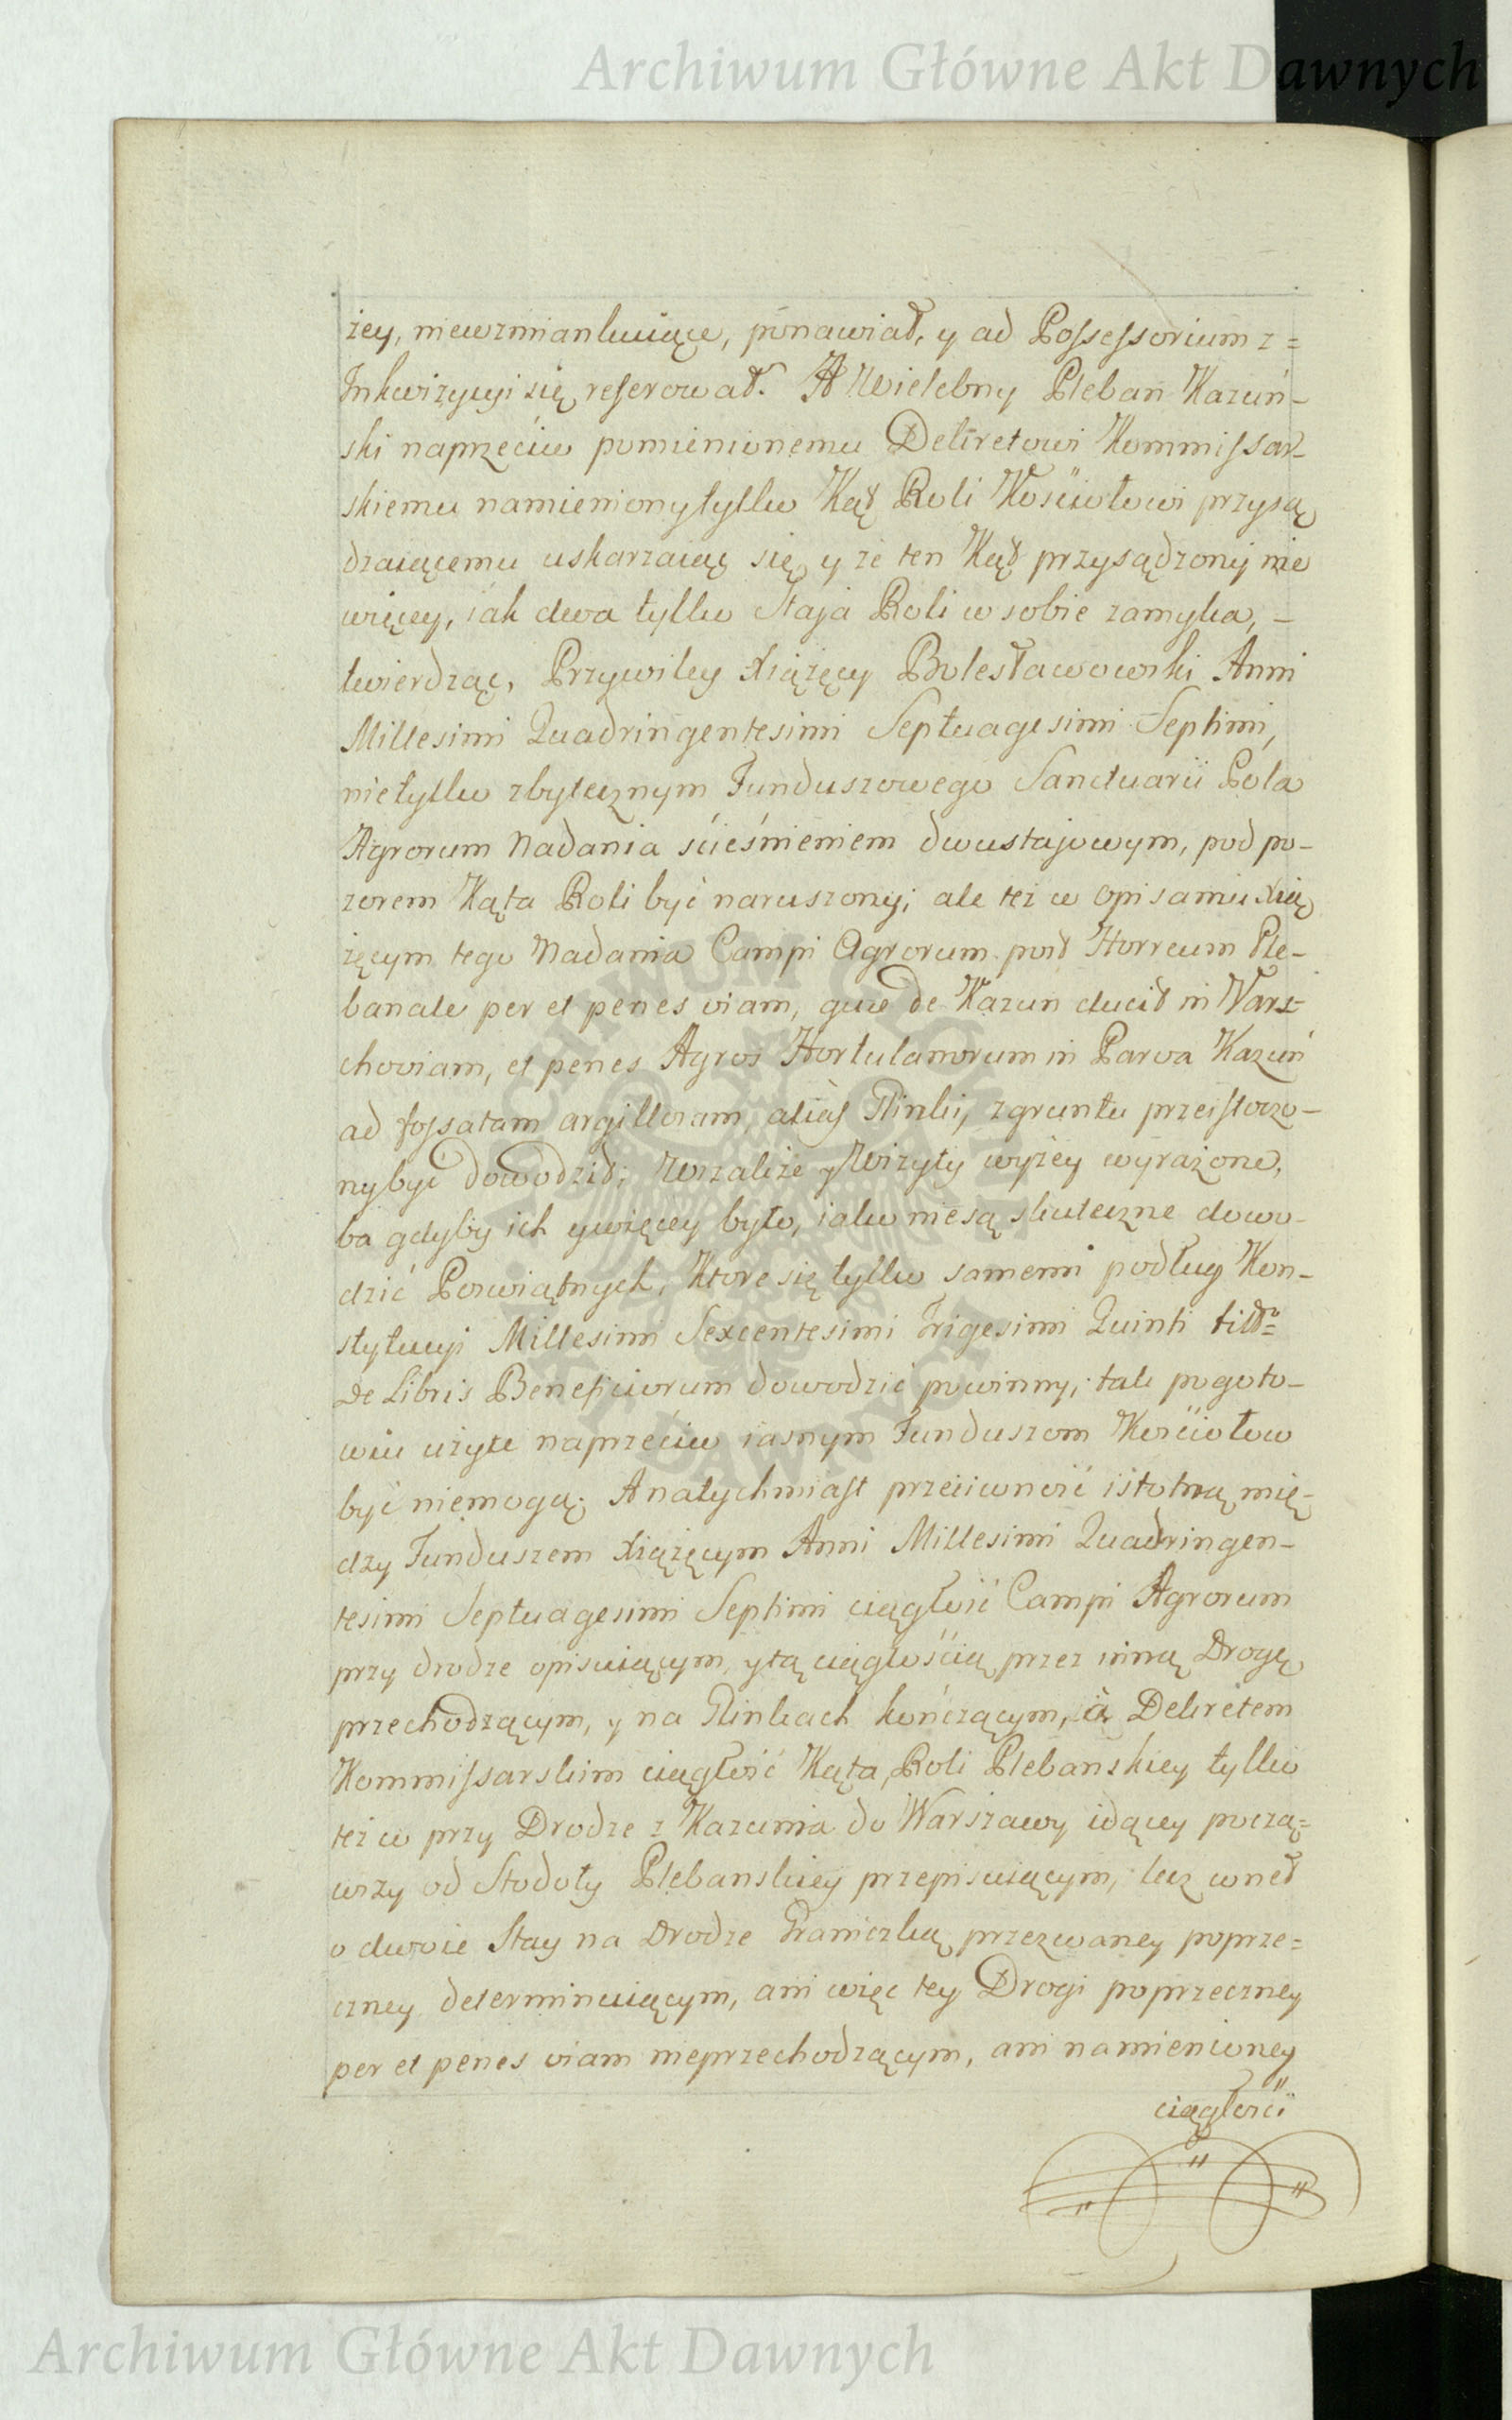 Archiwum Główne Akt Dawnych
żey, niewzmiankuiące, ponawiał, y ad Possessorium z=
Inkwizycyi się reserował. A Wielebny Pleban Kazuń-
ski naprzeciw pomienionemu Dekretowi Kommissar-
skiemu namieniony tylko Kąt Roli Kościołowi przysą
dzaiącemu uskarzaiąc się y że ten Kąt przysądzony nie
więcey, iak dwa tylko Staja Roli w sobie zamyka, -
twierdząc, Przywiley Xiążęcy Bolesławowski Anni
Millesimi Quadringentesimi Septuagesimi Septimi,
nietylko zbytecznym Funduszowego Sanctuarii Pola
Agrorum Nadania ścieśnieniem dwustajowym, pod po-
zorem Kąta Roli być naruszony; ale też w opisaniu Xią
żęcym tego Nadania Campi Agrorum post Horreum Ple-
banale per et penes viam, quæ de Kazun ducit in Wars-
choviam, et penes Agros Hortulanorum in Parva Kazuń
ad fossatam argillosam, alias Glinki, z gruntu przeistoczo-
ny być dowodził; Wszakże y Wizyty wyżey wyrażone,
ba gdyby ich y więcey było, iako nie są skuteczne dowo-
dzić Poświątnych, Które się tylko samemi podług Kon-
stytucyi Millesimi Sexcentesimi Trigesimi Quinti titº=
De Libris Beneficiorum dowodzić powinny; tak pogoto-
wiu użyte naprzeciw iasnym Funduszom Kościołow
być niemogą. A natychmiast przeciwność istotną mię-
dzy Funduszem Xiążęcym Anni Millesimi Quadringen-
tesimi Septuagesimi Septimi ciągłość Campi Agrorum
przy drodze opisuiącym, y tą ciągłością przez inną Drogę
przechodzącym, y na Glinkach kończącym, à Dekretem
Kommissarskim ciągłość Kąta Roli Plebańskiey tylko
też w przy Drodze z Kazunia do Warszawy idącey począ=
wszy od Stodoły Plebanskiey przepisuiącym, lecz wnet
o dwoie Stay na Drodze Graniczką przezwaney poprze=
czney determinuiącym, ani więc tey Drogi poprzeczney
per et penes viam nieprzechodzącym, ani namienioney
ciągłości
Archiwum Główne Akt Dawnych